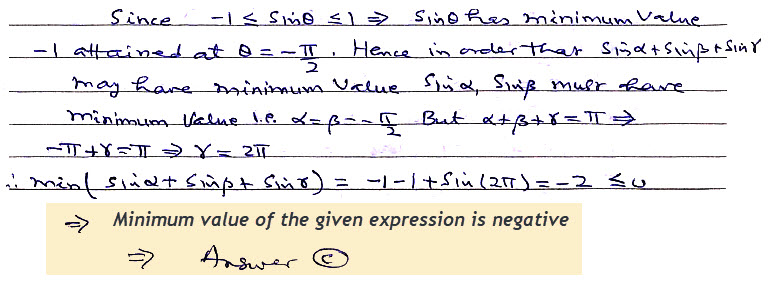 Since -1 ≤ Sinθ ≤ 1 ⇒ Sinθ has minimum value
-1 attained at θ = -π/2. Hence in order that Sinα+Sinβ+Sinγ
may have minimum value Sinα, Sinβ must have
minimum value i.e. α=β=-π/2 But α+β+γ=π ⇒
-π+γ=π ⇒ γ = 2π
∴ min( Sinα+ Sinβ+ Sinγ) = -1-1+Sin(2π)=-2 ≤0
⇒ Minimum value of the given expression is negative
⇒ Answer Ⓒ